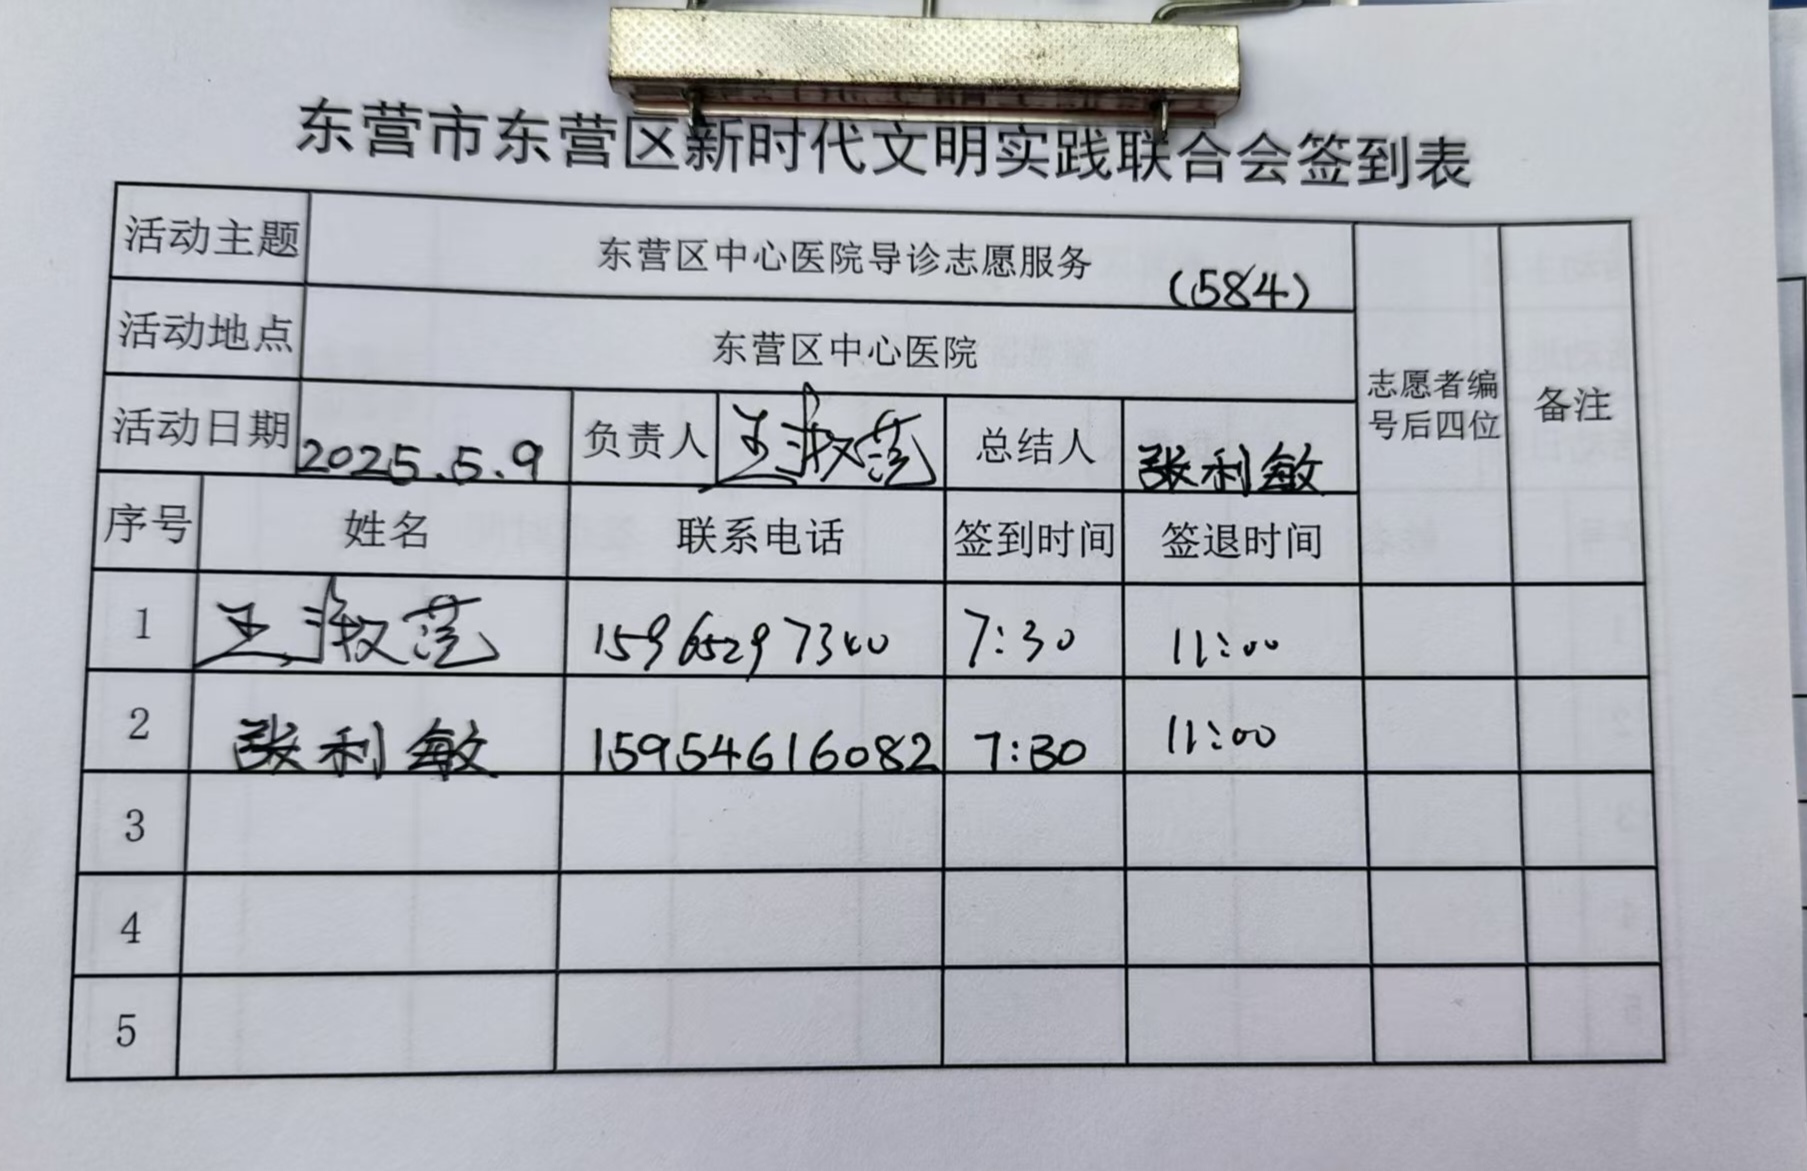 东营市东营区新时代文明实践联合会签到表
活动主题 东营区中心医院导诊志愿服务 (584)
活动地点 东营区中心医院
志愿者编号后四位 备注
活动日期 2025.5.9 负责人 王淑范 总结人 张利敏
序号 姓名 联系电话 签到时间 签退时间
1 王淑范 15965297340 7:30 11:00
2 张利敏 15954616082 7:30 11:00
3
4
5